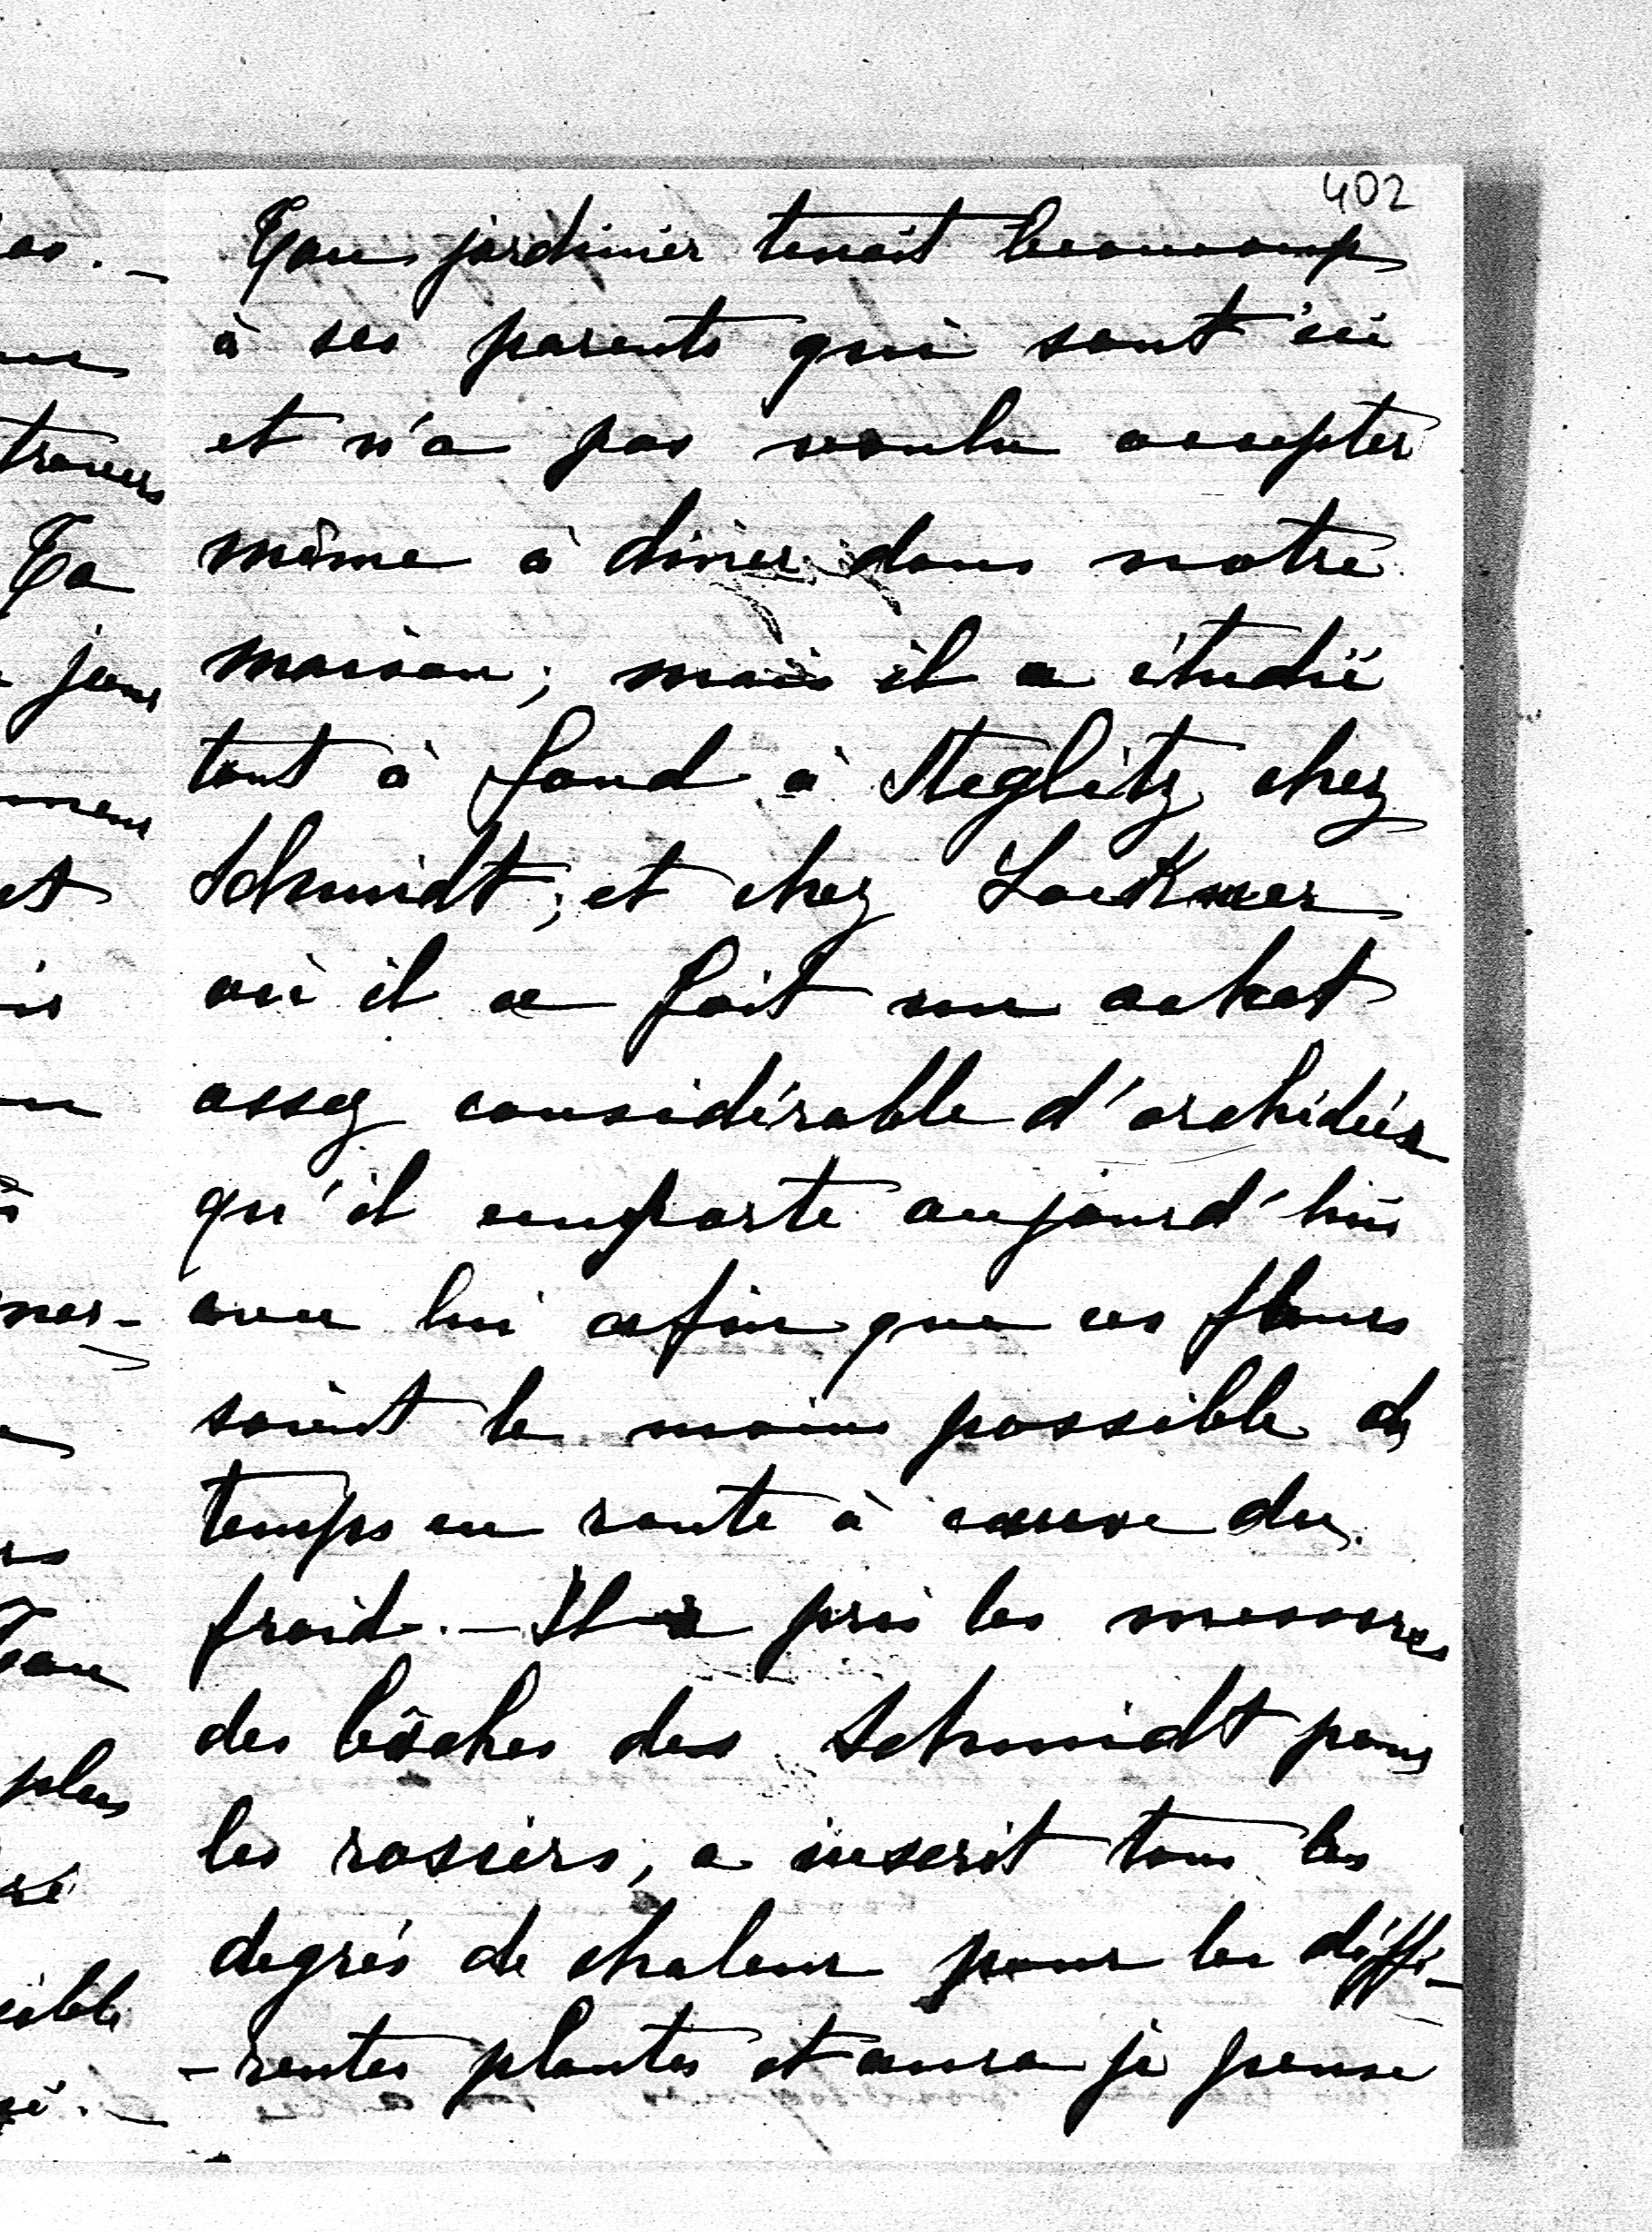 402
Ton jardinier tenait beaucoup
à ses parents qui sont ici
et n'a pas voulu accepter
même à diner dans notre
maison; mais il a étudié
tout à fond à Steglitz chez
Schmidt; et chez Lackner
où il a fait un achat
assez considérable d'orchidées
qu'il emporte aujourd'hui
avec lui afin que ces fleurs
soient le moins possible de
temps en route à cause du
froid. — Il a pris les mesures
des bâches des Schmidt pour
les rosiers, a inscrit tous les
degrés de chaleur pour les diffé-
-rentes plantes et aura je pense